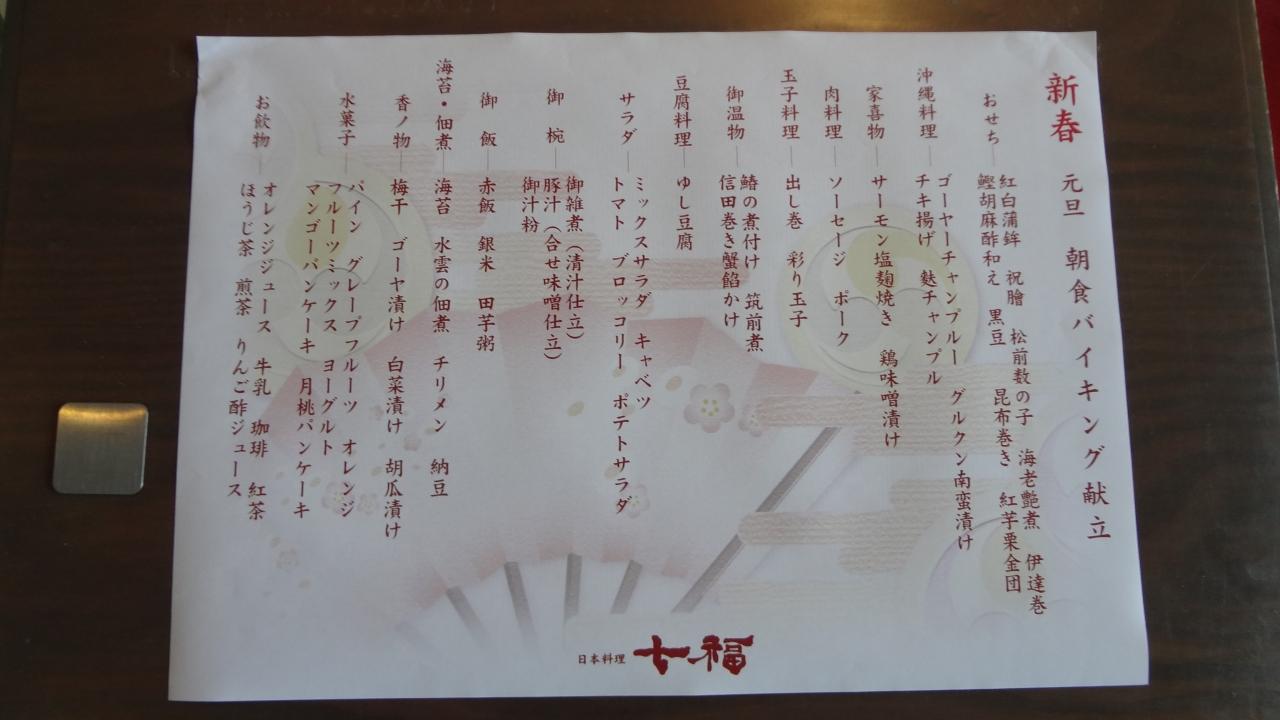 新春 元旦 朝食バイキング献立
おせち 紅白蒲鉾 祝膾 松前数の子 海老艶煮 伊達巻
鰹胡麻酢和え 黒豆 昆布巻き 紅芋栗金団
沖縄料理 ゴーヤーチャンプルー グルクン南蛮漬け
チキ揚げ 麩チャンプル
家喜物 サーモン塩麹焼き 鶏味噌漬け
肉料理 ソーセージ ポーク
玉子料理 出し巻 彩り玉子
御温物 鰆の煮付け 筑前煮
信田巻き蟹餡かけ
豆腐料理 ゆし豆腐
サラダ ミックスサラダ キャベツ
トマト ブロッコリー ポテトサラダ
御椀 御雑煮(清汁仕立)
豚汁(合せ味噌仕立)
御汁粉
御飯 赤飯 銀米 田芋粥
海苔・佃煮 海苔 水雲の佃煮 チリメン 納豆
香ノ物 梅干 ゴーヤ漬け 白菜漬け 胡瓜漬け
水菓子 パイン グレープフルーツ オレンジ
フルーツミックス ヨーグルト
マンゴーパンケーキ 月桃パンケーキ
お飲物 オレンジジュース 牛乳 珈琲 紅茶
ほうじ茶 煎茶 りんご酢ジュース
日本料理 七福